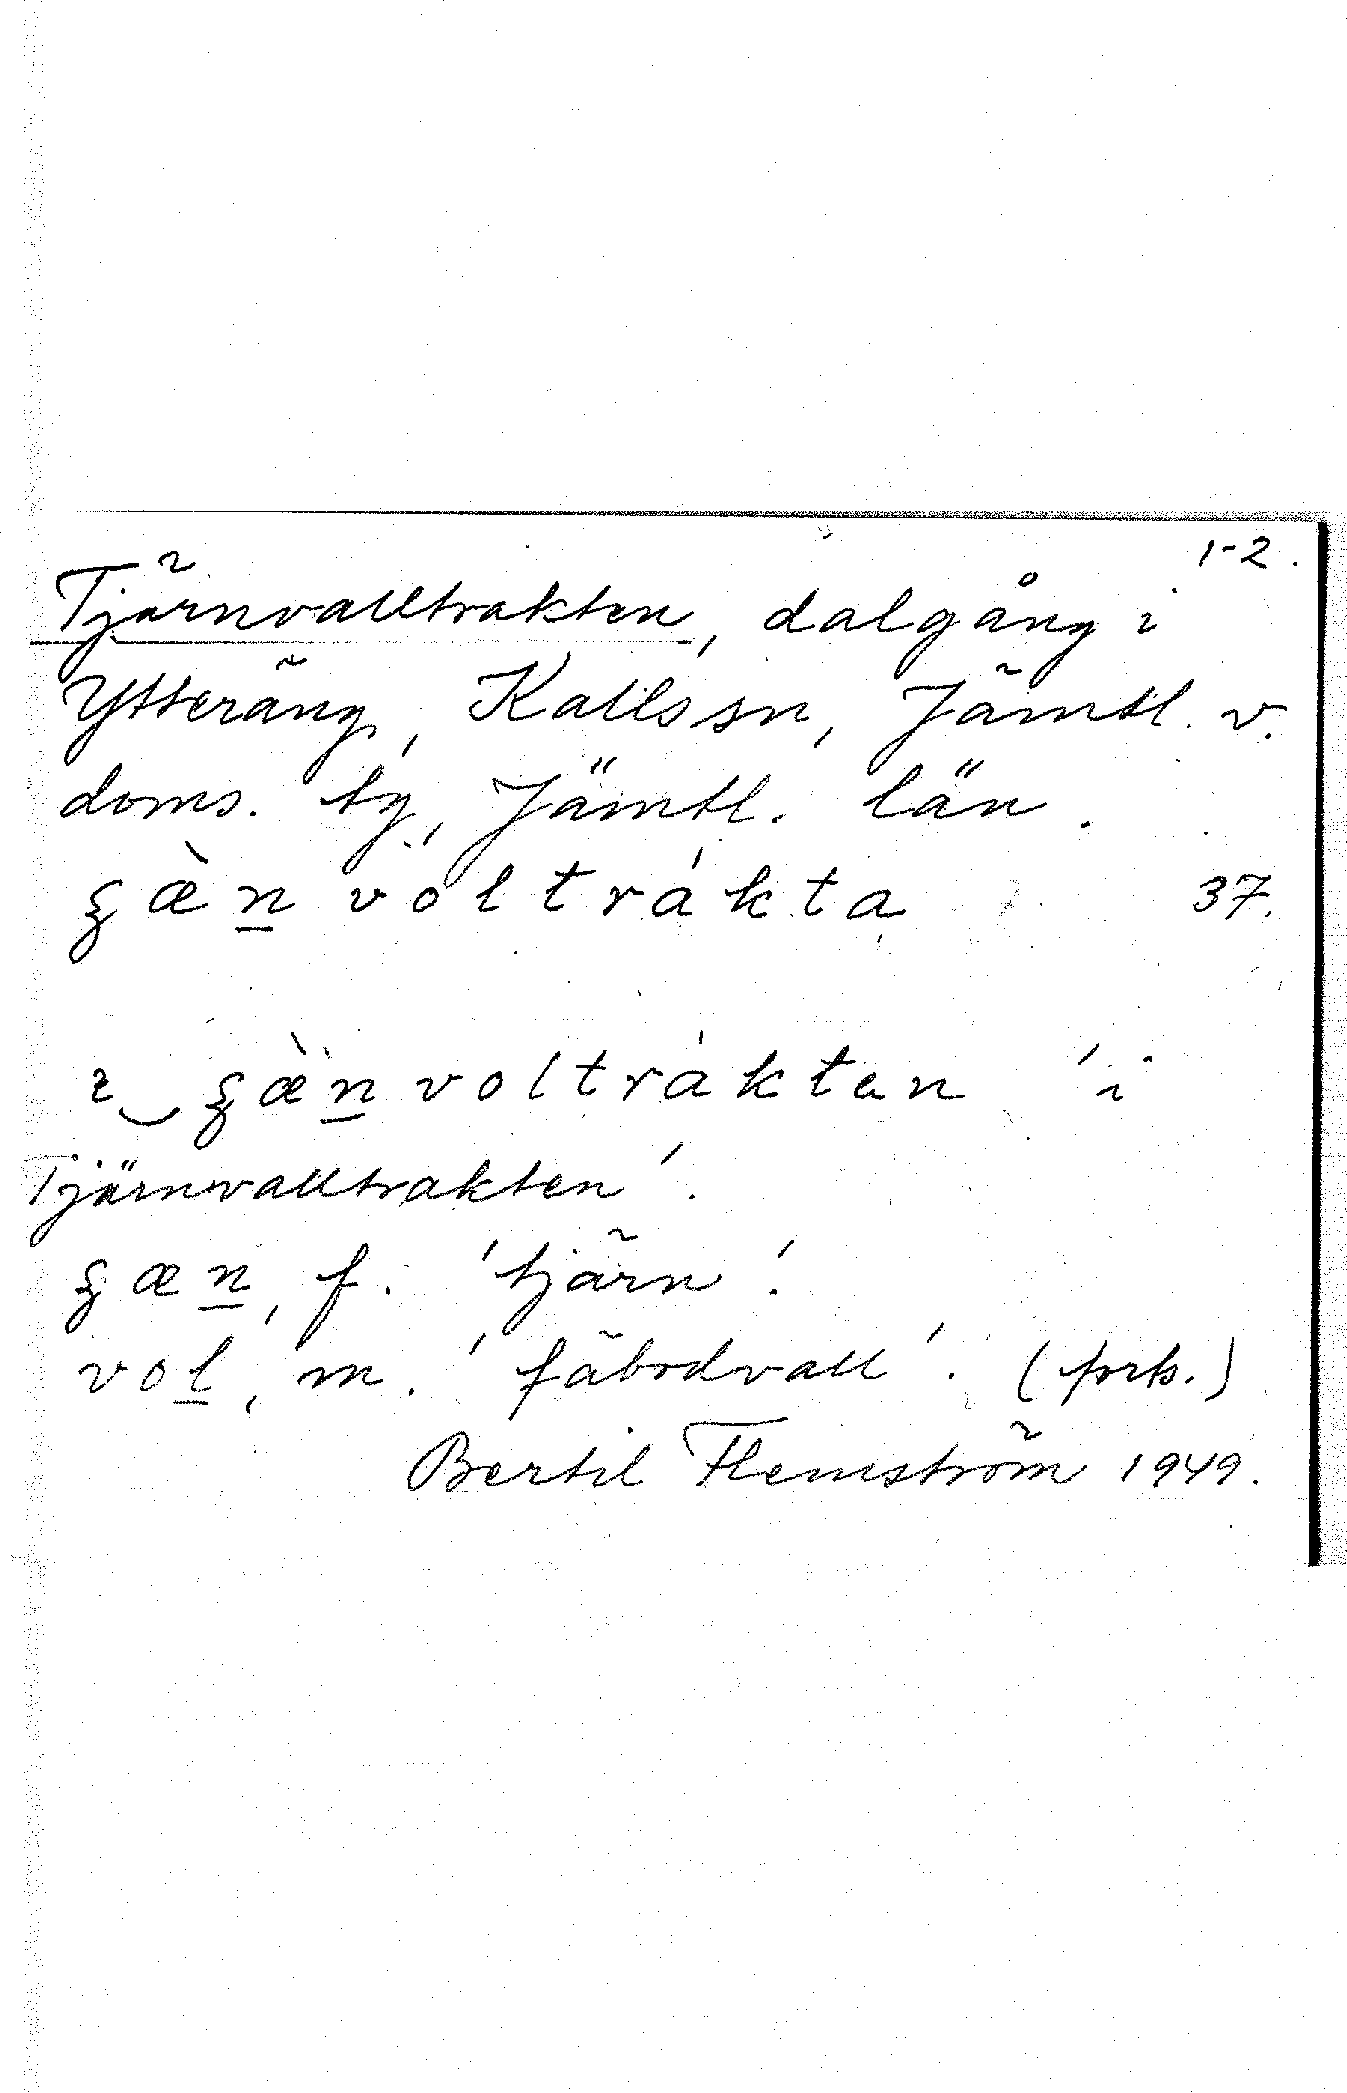 1-2.
Tjärnvalltrakten, dalgång i
Ytteräng, Kalls sn, Jämtl. v.
doms. tg, Jämtl. län.
ʂæ̀n̲ voltrákta 37.
i‿ʂæ̀n̲voltráktan 'i
Tjärnvalltrakten'.
ʂæn̲, f. 'tjärn'.
vol̲, m. 'fäbodvall'. (frk.)
Bertil Flemström 1949.